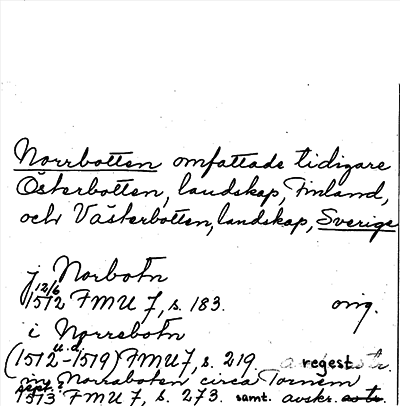 Norrbotten omfattade tidigare
Österbotten, landskap, Finland,
och Västerbotten, landskap, Sverige
j Norbotn
12/6
1512 FMU 7, s. 183. orig.
i Norrebotn
u.d.
(1512 - 1519) FMU 7, s. 219. regest
Norraboten circa Tornem
sept.
1513 FMU 7, s. 273. samt. avskr.